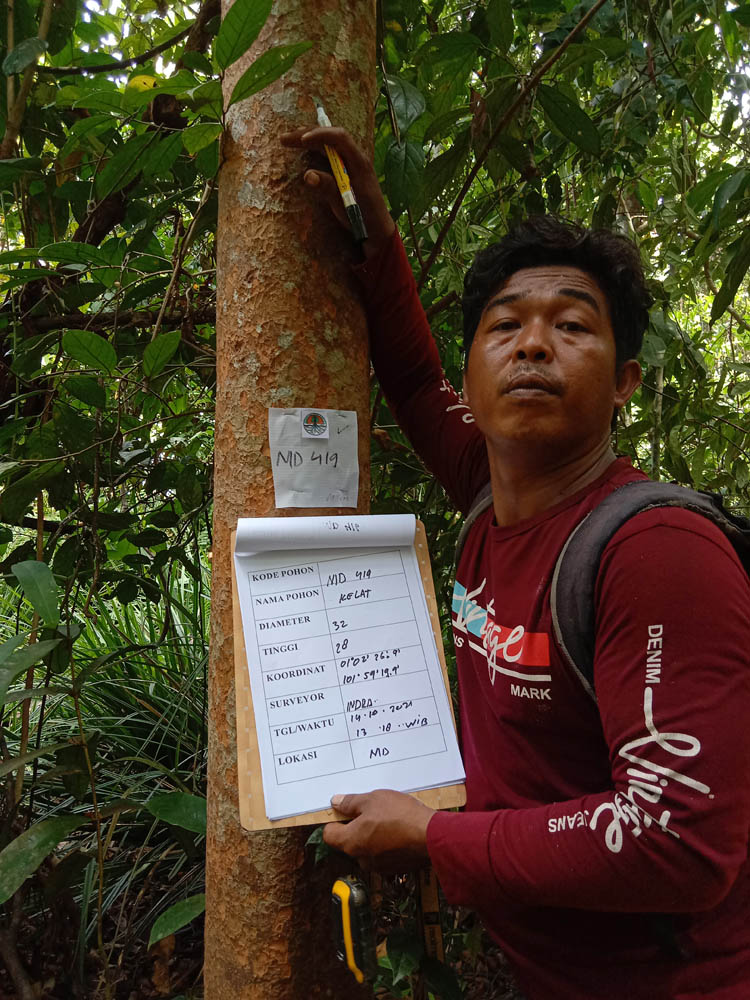 MD 419
KODE POHON MD 419
NAMA POHON KELAT
DIAMETER 32
TINGGI 28
KOORDINAT 01°02' 26.9'
101°59'19.9'
SURVEYOR INDRA.
TGL/WAKTU 14.10.2021
13.18.. WIB
LOKASI MD
MARK
DENIM
Vintage
JEANS